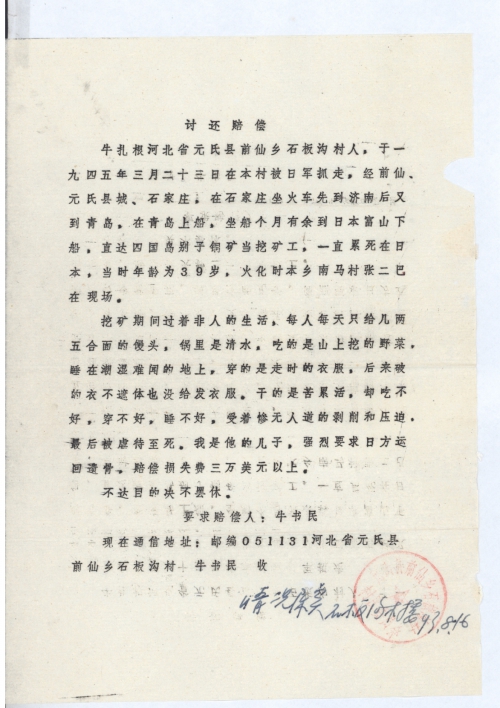 讨还赔偿
牛扎根河北省元氏县前仙乡石板沟村人，于一
九四五年三月二十三日在本村被日军抓走，经前仙、
元氏县城、石家庄，在石家庄坐火车先到济南后又
到青岛，在青岛上船，坐船个月有余到日本富山下
船，直达四国岛别子铜矿当挖矿工，一直累死在日
本，当时年龄为39岁，火化时本乡南马村张二巴
在现场。
挖矿期间过着非人的生活，每人每天只给几两
五合面的馒头，锅里是清水，吃的是山上挖的野菜，
睡在潮湿难闻的地上，穿的是走时的衣服，后来破
的衣不遮体也没给发衣服。干的是苦累活，却吃不
好，穿不好，睡不好，受着惨无人道的剥削和压迫，
最后被虐待至死。我是他的儿子，强烈要求日方运
回遗骨，赔偿损失费三万美元以上。
不达目的决不罢休。
要求赔偿人：牛书民
现在通信地址：邮编051131河北省元氏县
前仙乡石板沟村 牛书民 收
情况保真 石板沟村 93.8.16